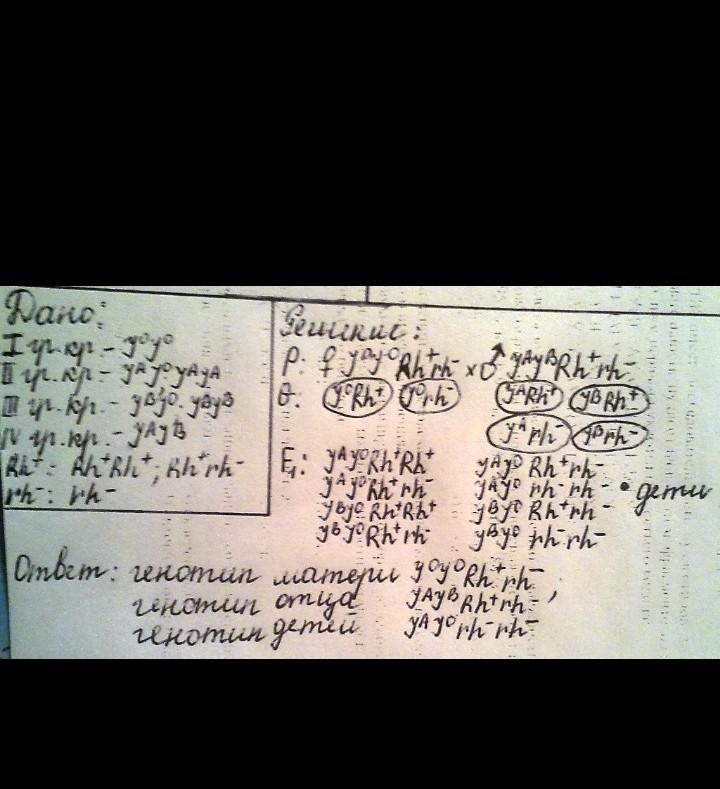 Дано:
I гр.кр.- y⁰y⁰
II гр.кр.- yᴬy⁰yᴬyᴬ
III гр.кр.- yᴮy⁰. yᴮyᴮ
IV гр.кр.- yᴬyᴮ
Rh⁺: Rh⁺Rh⁺; Rh⁺rh⁻
rh⁻: rh⁻
Решение:
P: ♀ y⁰y⁰Rh⁺rh⁻ × ♂ yᴬyᴮRh⁺rh⁻
G: y⁰Rh⁺ y⁰rh⁻ yᴬRh⁺ yᴮRh⁺
yᴬrh⁻ yᴮrh⁻
F₁: yᴬy⁰Rh⁺Rh⁺ yᴬy⁰Rh⁺rh⁻
yᴬy⁰Rh⁺rh⁻ yᴬy⁰ rh⁻rh⁻ • дети
yᴮy⁰Rh⁺Rh⁺ yᴮy⁰Rh⁺rh⁻
yᴮy⁰Rh⁺rh⁻ yᴮy⁰ rh⁻rh⁻
Ответ: генотип матери y⁰y⁰Rh⁺rh⁻,
генотип отца yᴬyᴮRh⁺rh⁻,
генотип детей yᴬy⁰rh⁻rh⁻